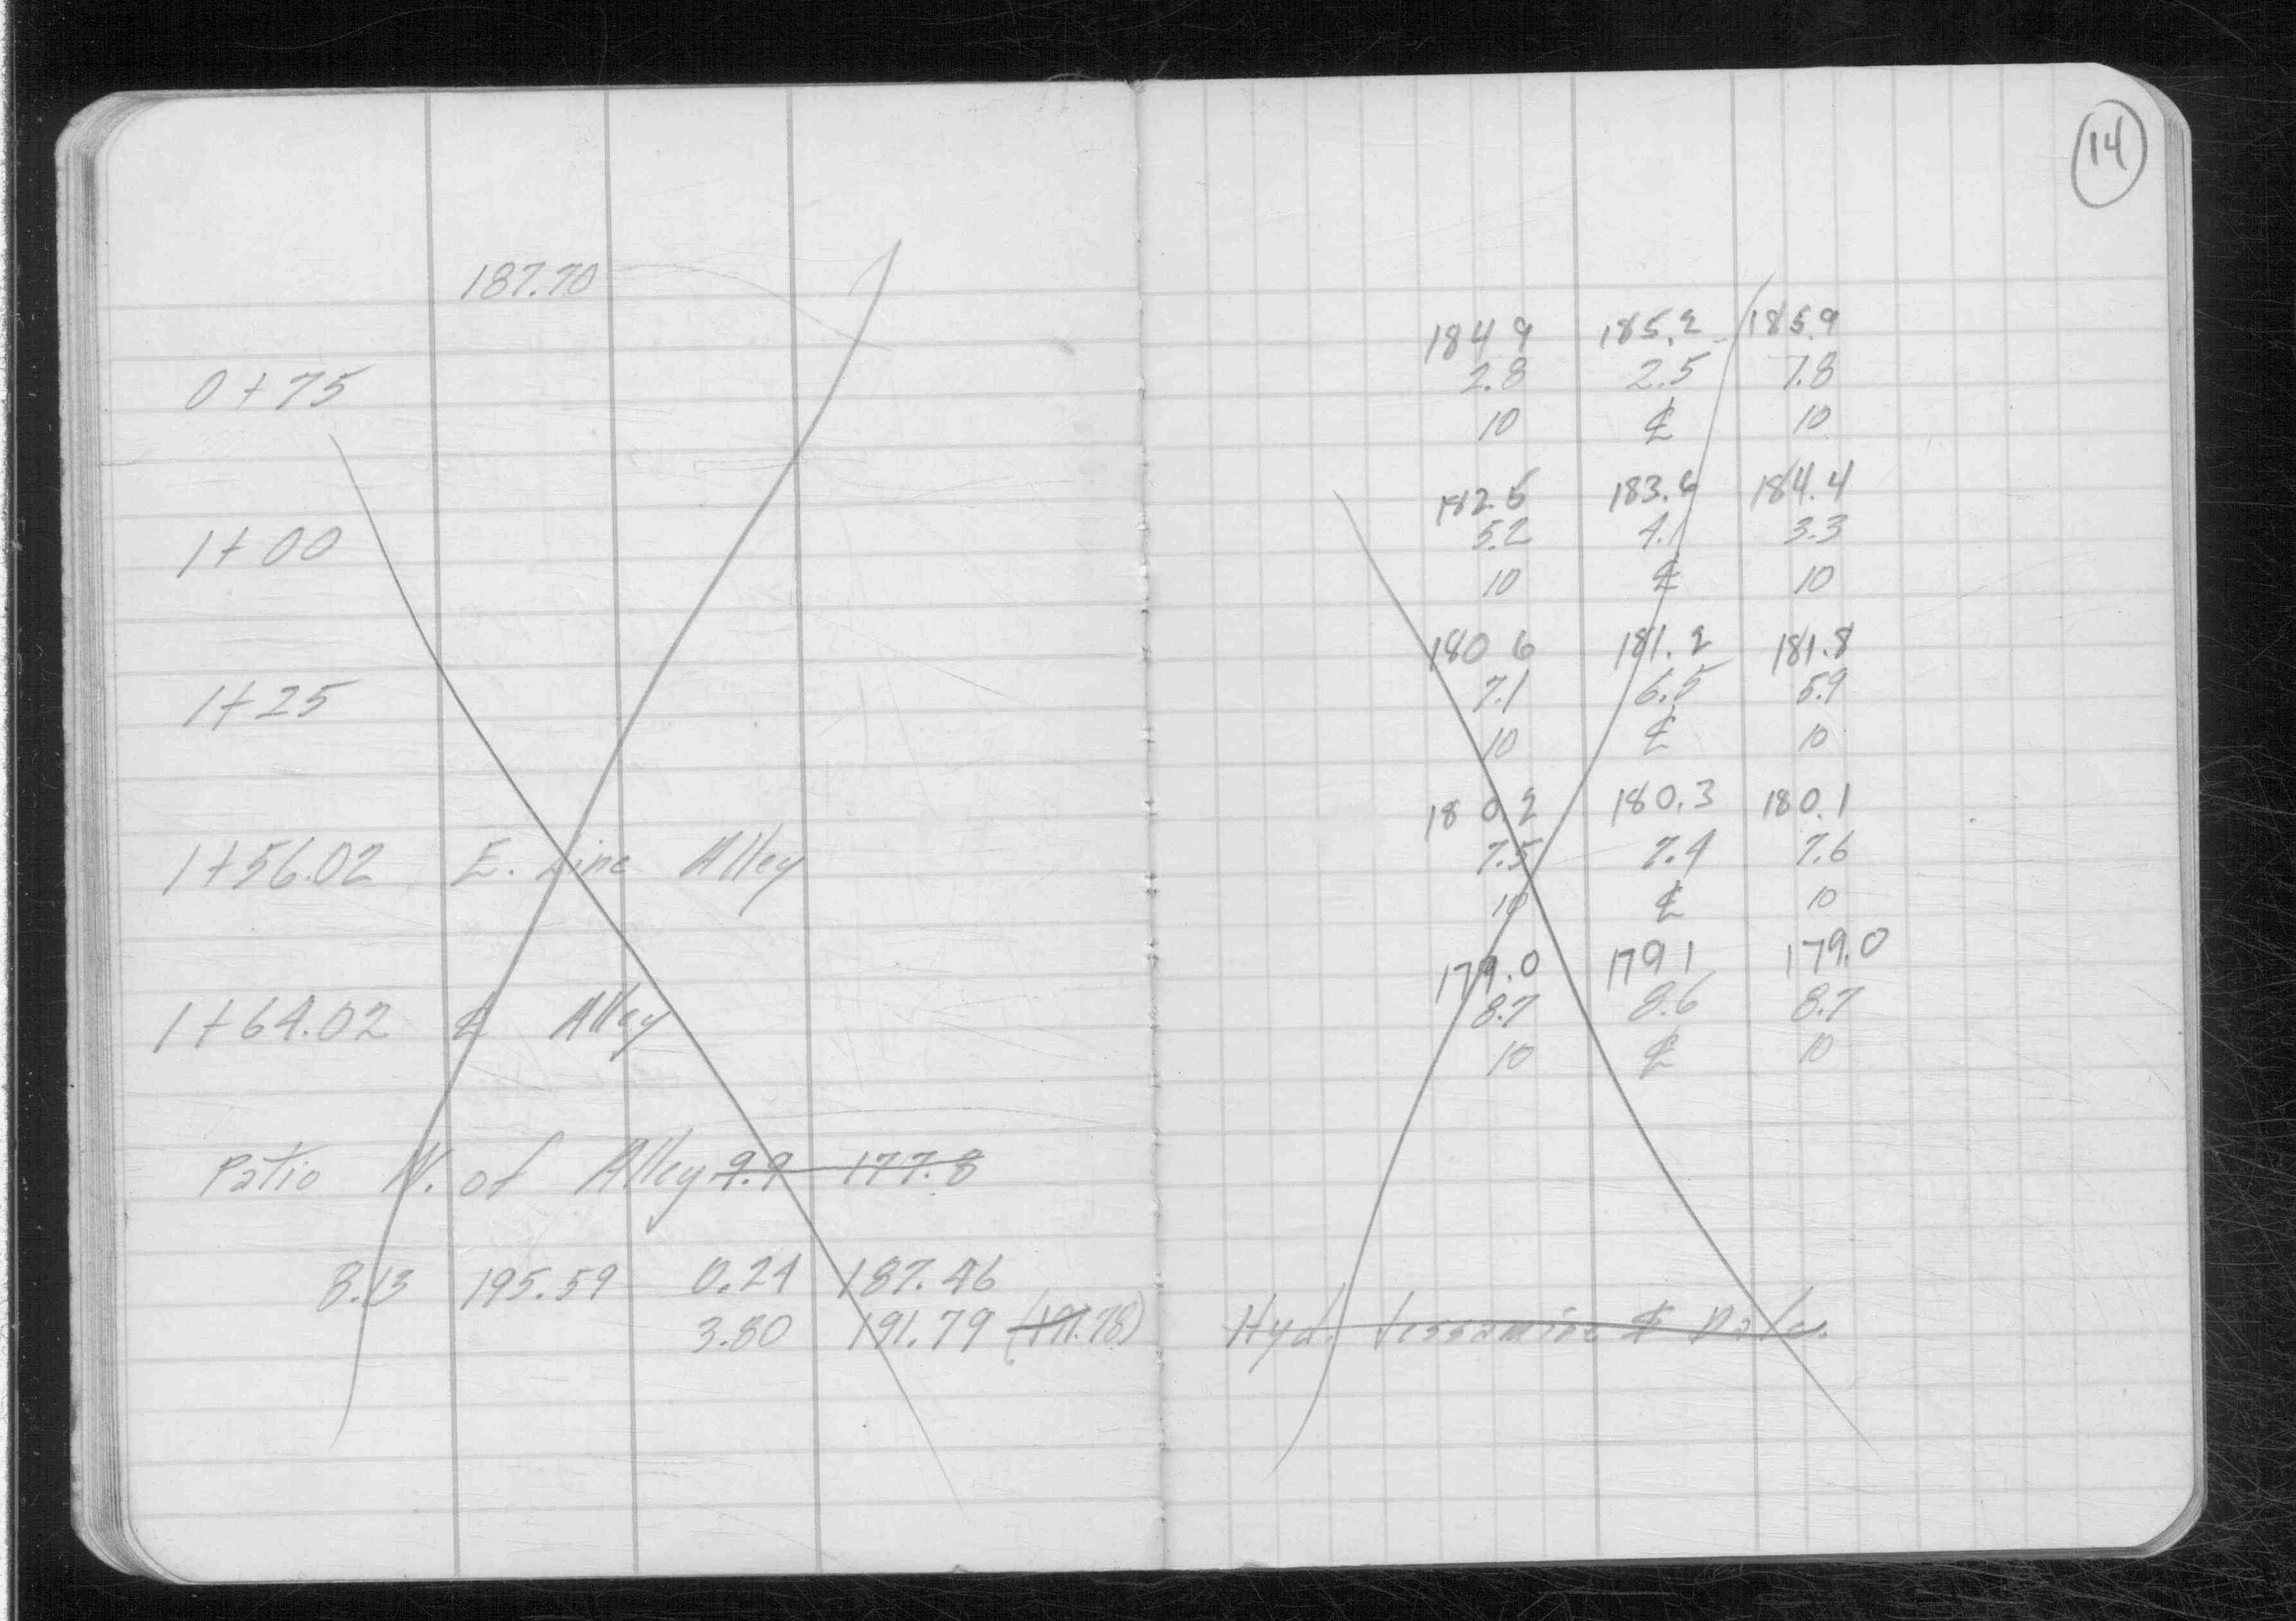 14
187.70
184.9 185.2 185.9
0+75 2.8 2.5 7.8
10 ℄ 10
182.5 183.6 184.4
1+00 5.2 4.1 3.3
10 ℄ 10
180.6 181.2 181.8
1+25 7.1 6.5 5.9
10 ℄ 10
180.2 180.3 180.1
1+56.02 E. Line Alley 7.5 7.4 7.6
10 ℄ 10
179.0 179.1 179.0
1+64.02 ℄ Alley 8.7 8.6 8.7
10 ℄ 10
Patio W. of Alley 9.9 177.8
8.13 195.59 0.24 187.46
3.80 191.79 (191.78) Hyd. Jessamine & Dale.